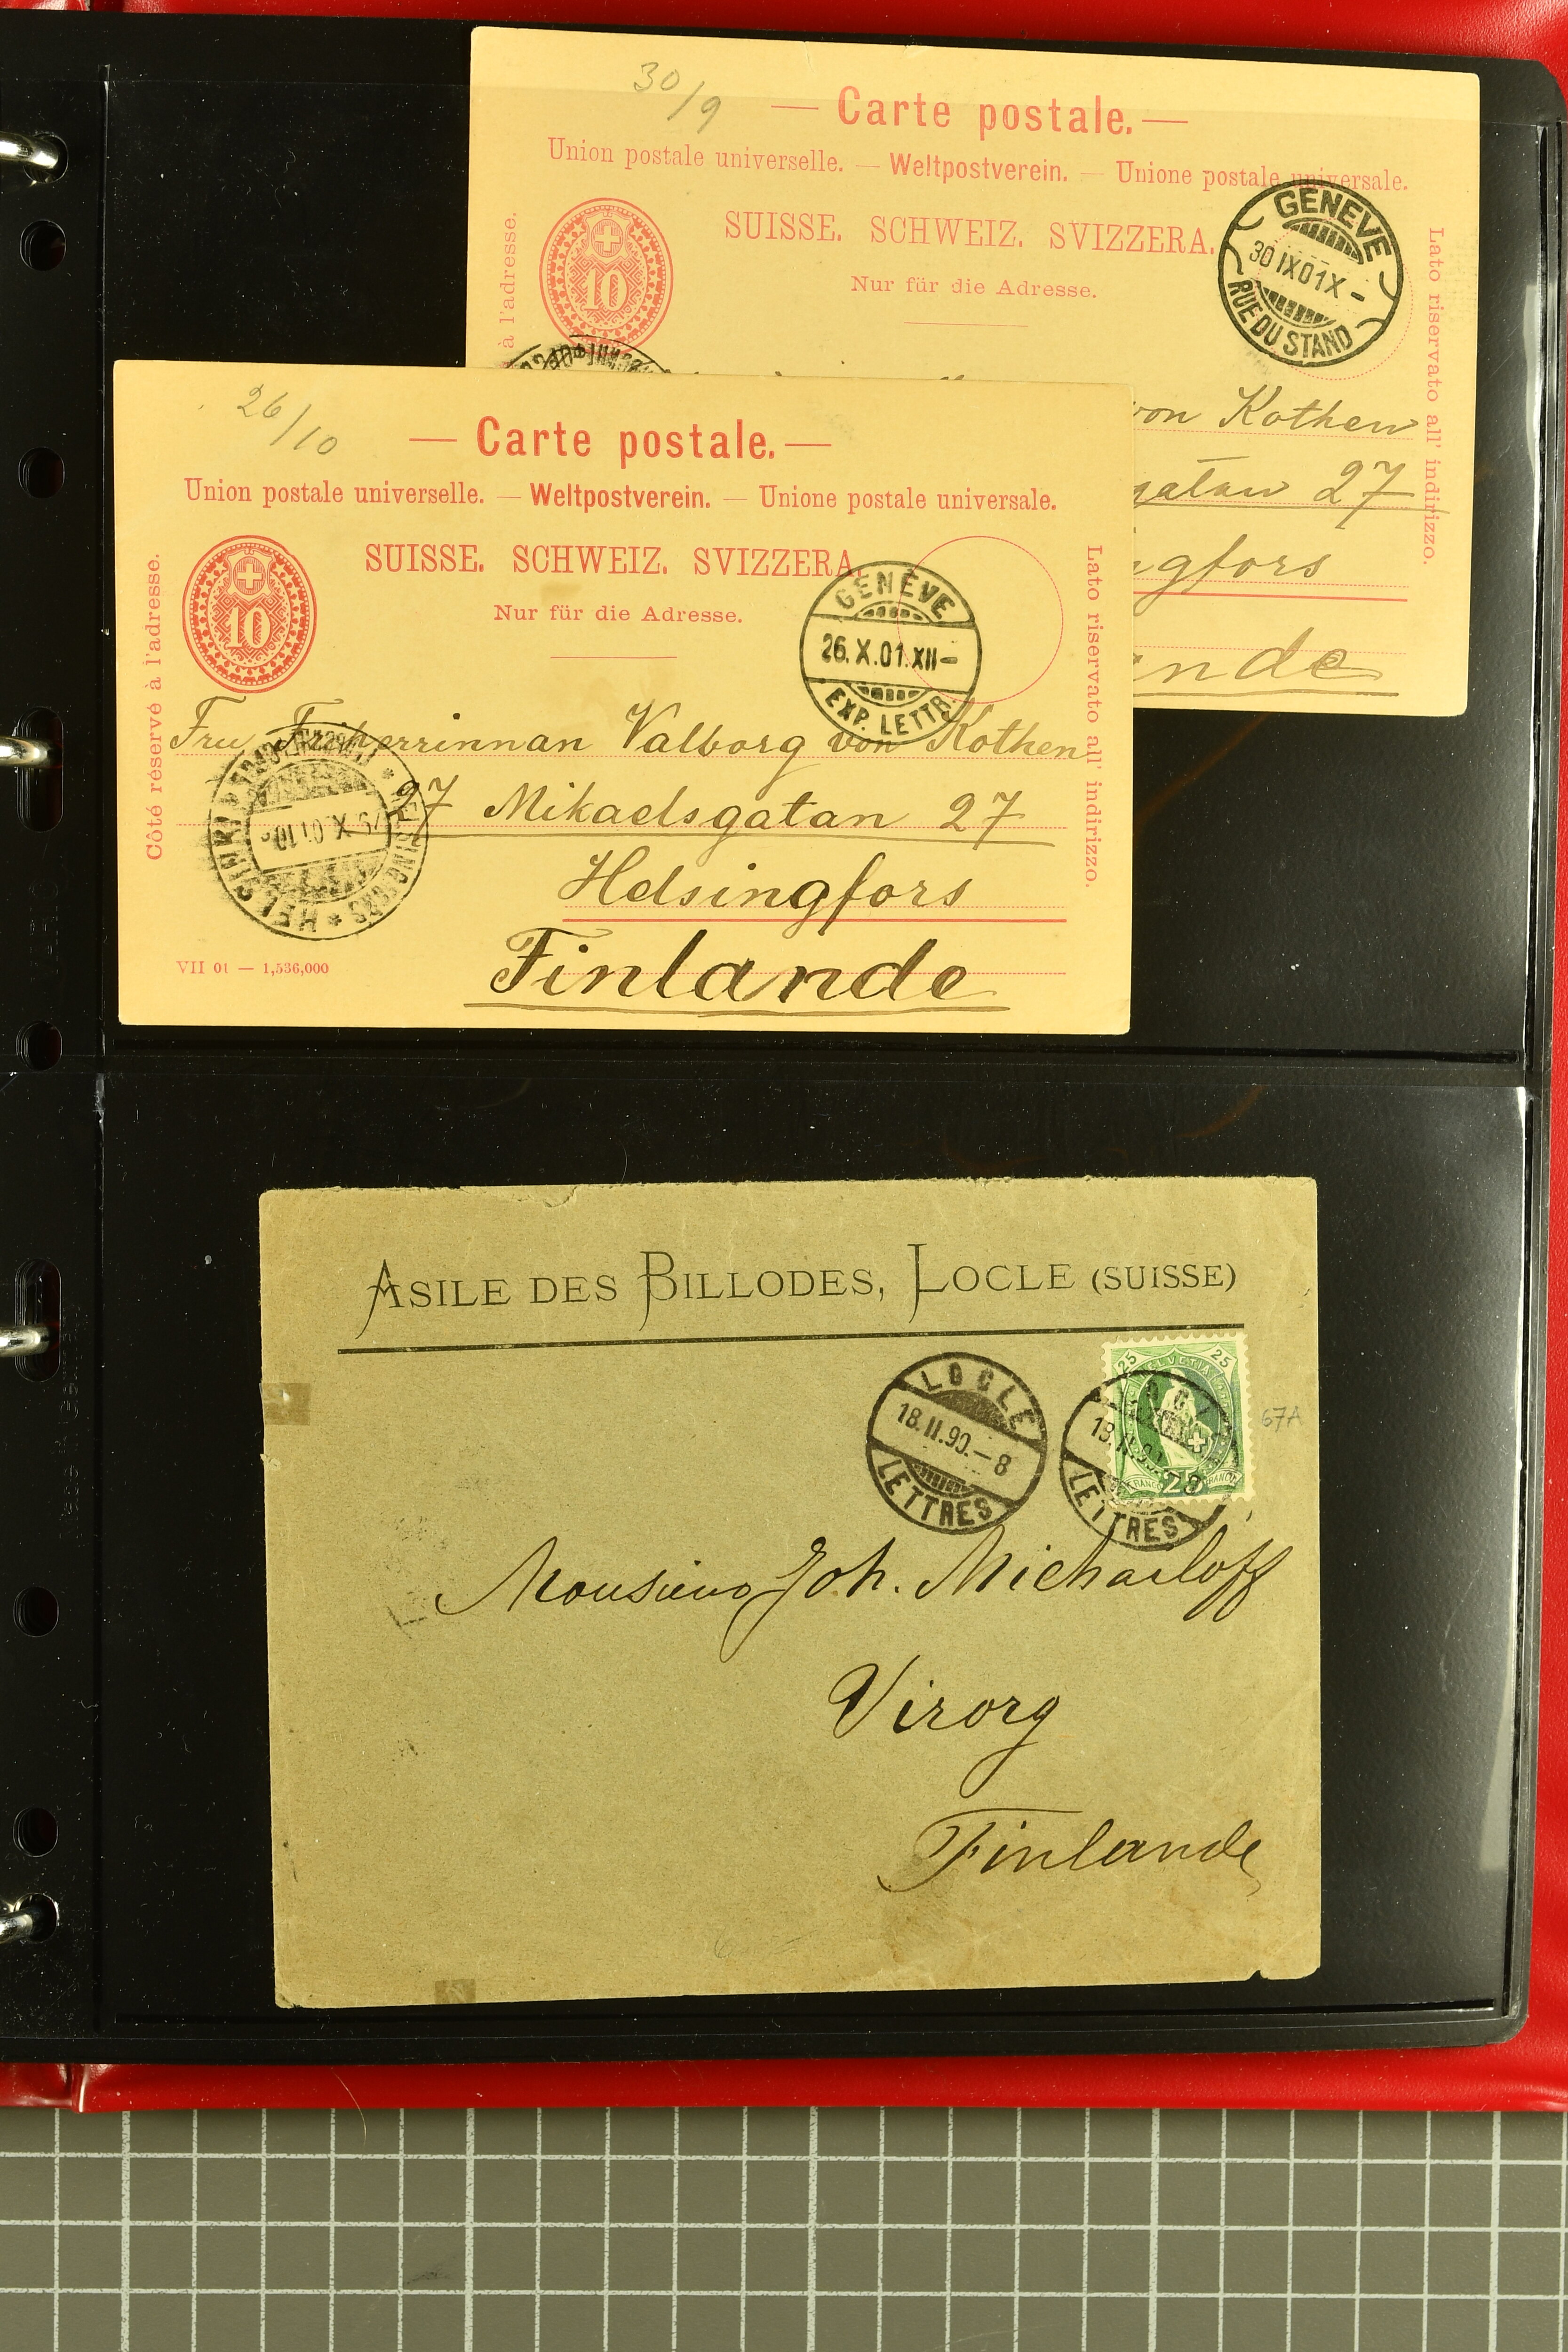 30/9
— Carte postale. —
Union postale universelle. — Weltpostverein. — Unione postale universale.
SUISSE. SCHWEIZ. SVIZZERA.
Nur für die Adresse.
à l'adresse.
10
GENÈVE
30 IX 01 X –
RUE DU STAND
Lato riservato all' indirizzo.
von Kothen
gatan 27
ngfors
nde
26/10
— Carte postale. —
Union postale universelle. — Weltpostverein. — Unione postale universale.
SUISSE. SCHWEIZ. SVIZZERA.
Nur für die Adresse.
Côté réservé à l'adresse.
10
GENÈVE
26.X.01.XII–
EXP. LETTR.
Lato riservato all' indirizzo.
Fru Friherrinnan Valborg von Kothen
27 Mikaelsgatan 27
Helsingfors
Finlande
HELSINKI
VII 01 — 1,536,000
ASILE DES BILLODES, LOCLE (SUISSE)
LOCLE
18.II.90.–8
LETTRES
25 HELVETIA 25
FRANCO 25 FRANCO
LETTRES
67A
Monsieur Joh. Michailoff
Virorg
Finlande